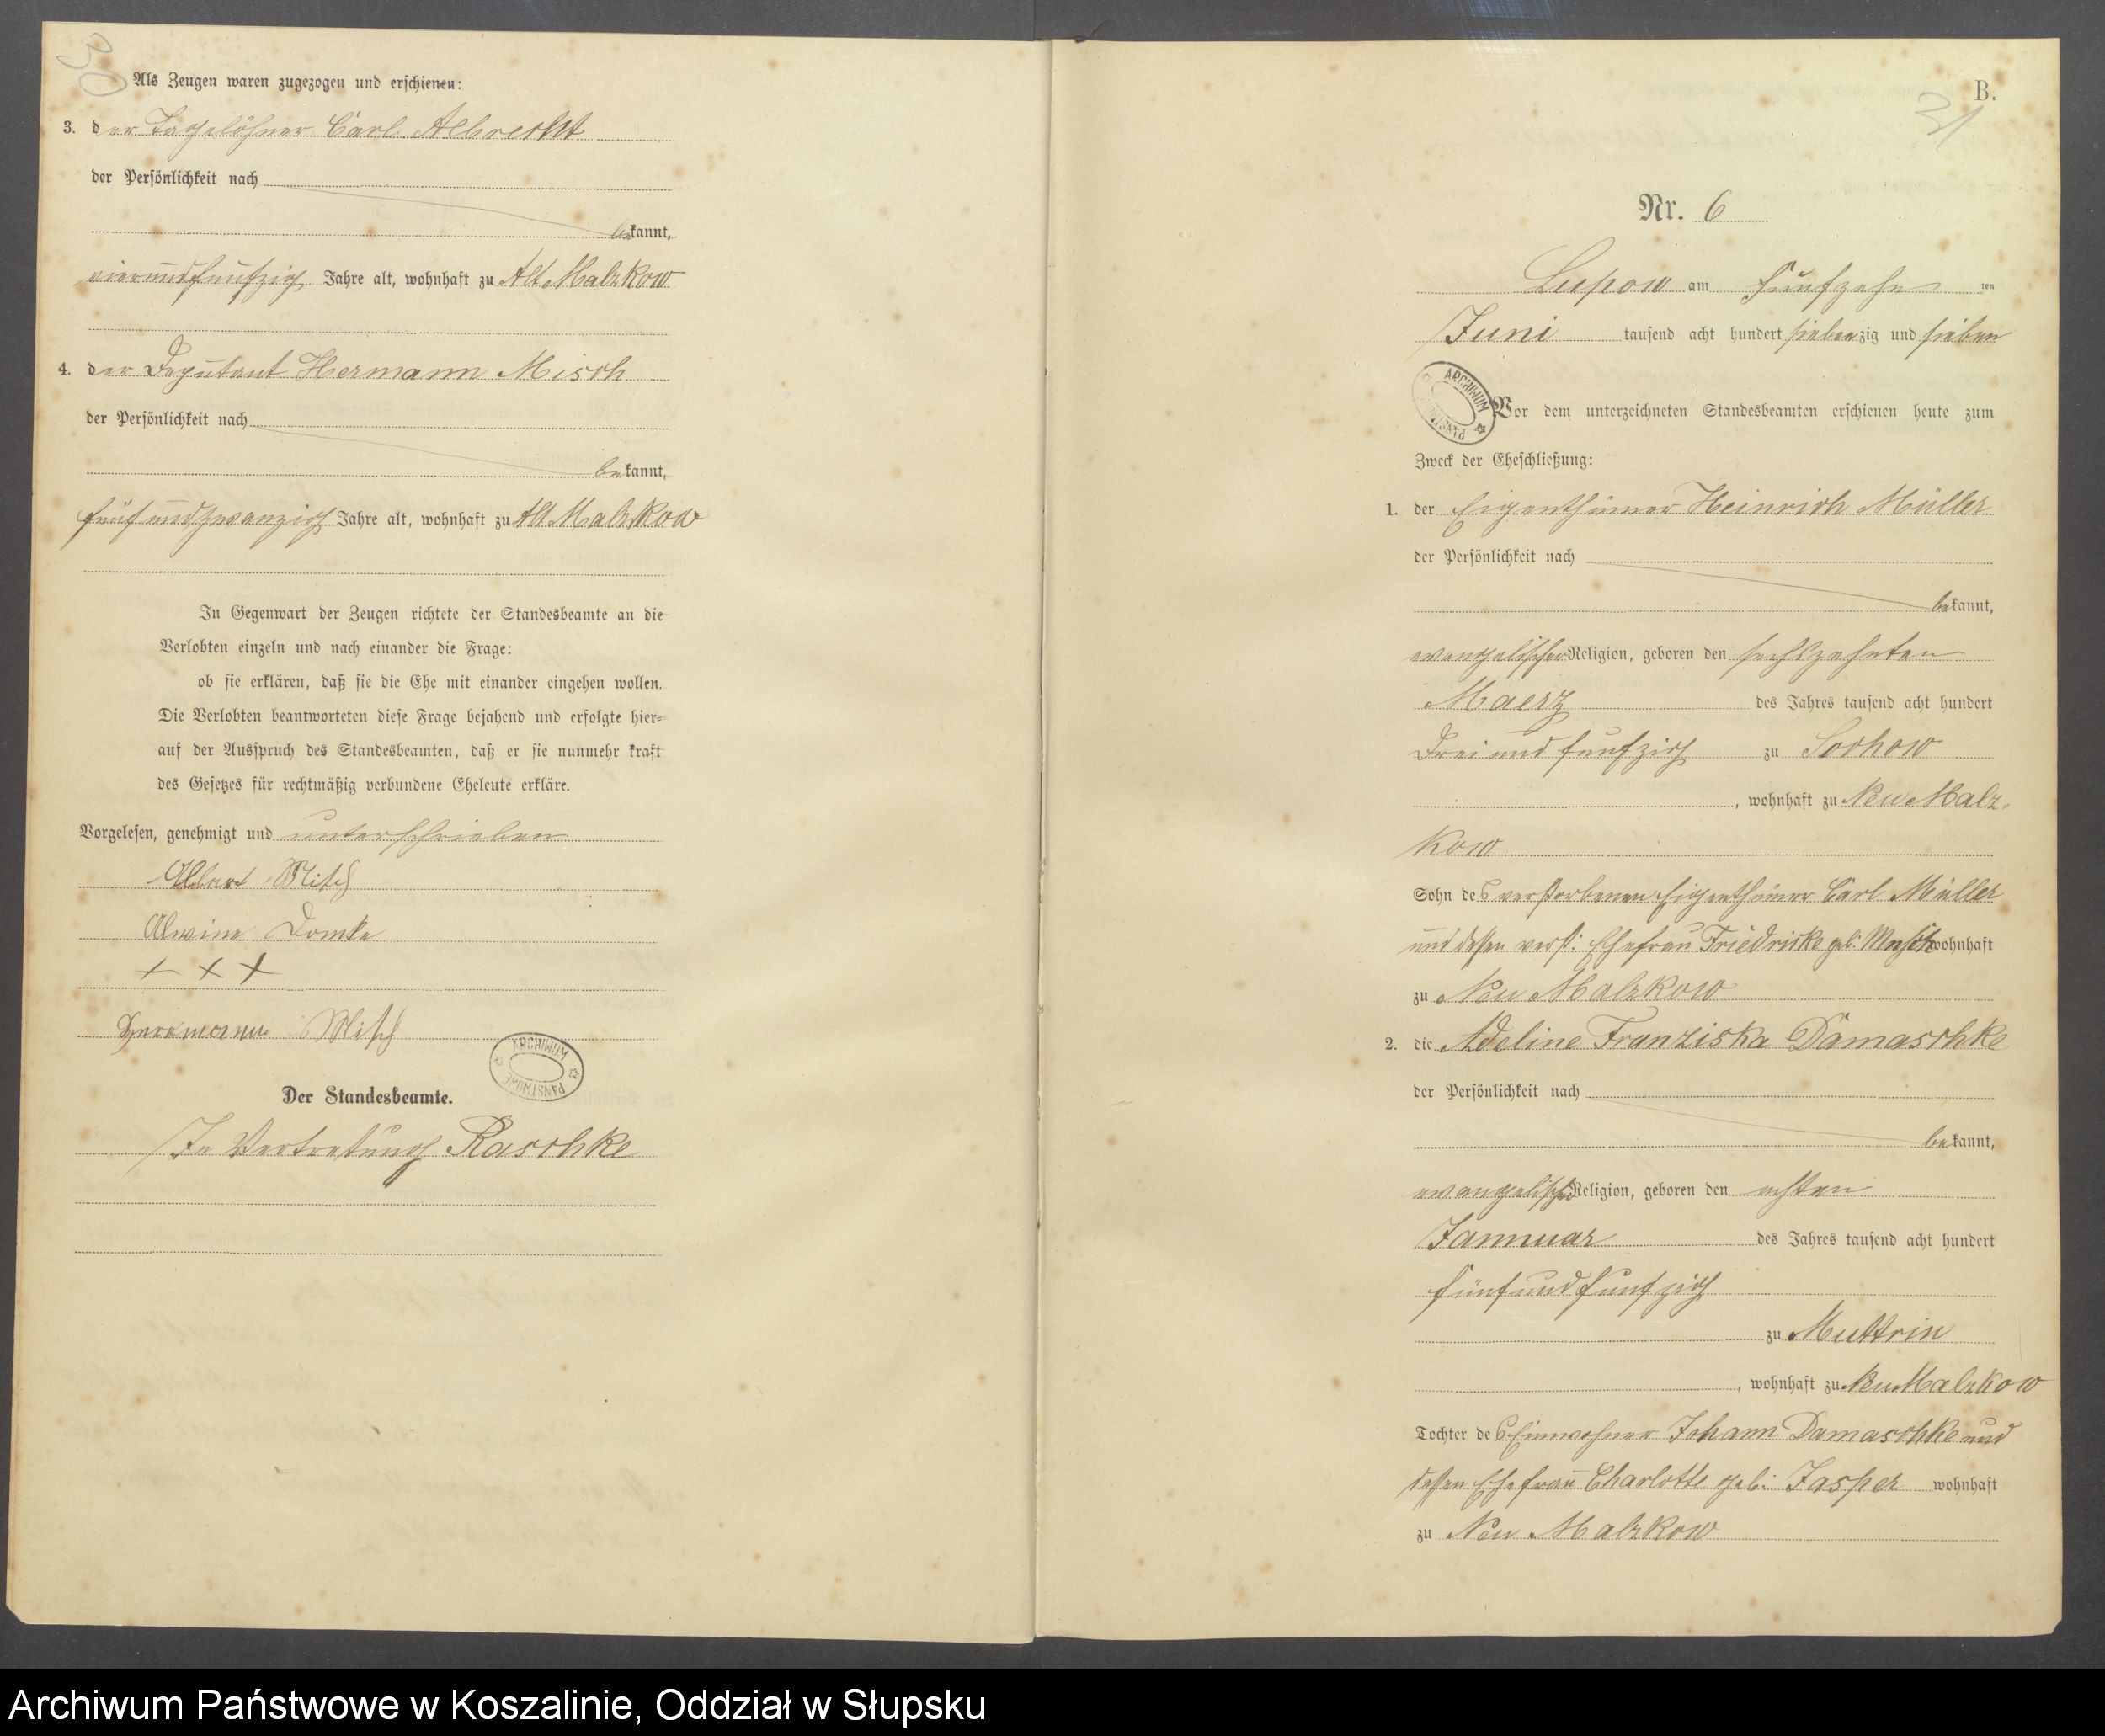 30
Als Zeugen waren zugezogen und erschienen:
3. der Tagelöhner Carl Albrecht
der Persönlichkeit nach
bekannt,
vierundfünfzig Jahre alt, wohnhaft zu Alt Malzkow
4. der Deputant Hermann Misch
der Persönlichkeit nach
bekannt,
fünfundzwanzig Jahre alt, wohnhaft zu Alt Malzkow
In Gegenwart der Zeugen richtete der Standesbeamte an die
Verlobten einzeln und nach einander die Frage:
ob sie erklären, daß sie die Ehe mit einander eingehen wollen.
Die Verlobten beantworteten diese Frage bejahend und erfolgte hier-
auf der Ausspruch des Standesbeamten, daß er sie nunmehr kraft
des Gesetzes für rechtmäßig verbundene Eheleute erkläre.
Vorgelesen, genehmigt und unterschrieben
Misch
Alwine Domke
+ + +
Herrmann Misch
ARCHIWUM PAŃSTWOWE
Der Standesbeamte.
In Vertretung Raschke
B.
31
Nr. 6
Lupow am fünfzehn ten
Juni tausend acht hundert siebenzig und sieben
ARCHIWUM PAŃSTWOWE
Vor dem unterzeichneten Standesbeamten erschienen heute zum
Zweck der Eheschließung:
1. der Eigenthümer Heinrich Müller
der Persönlichkeit nach
bekannt,
evangelischer Religion, geboren den sechszehnten
Maerz des Jahres tausend acht hundert
Drei und fünfzig zu Sochow
, wohnhaft zu Neu Malz-
kow
Sohn des verstorbenen Eigenthümer Carl Müller
und dessen verst: Ehefrau Friedricke geb: wohnhaft
zu Neu Malzkow
2. die Adeline Franziska Damaschke
der Persönlichkeit nach
bekannt,
evangelischer Religion, geboren den achten
Januar des Jahres tausend acht hundert
fünf und fünfzig
zu Muttrin
, wohnhaft zu Neu Malzkow
Tochter des Einwohner Johann Damaschke und
dessen Ehefrau Charlotte geb: Jasper wohnhaft
zu Neu Malzkow
Archiwum Państwowe w Koszalinie, Oddział w Słupsku